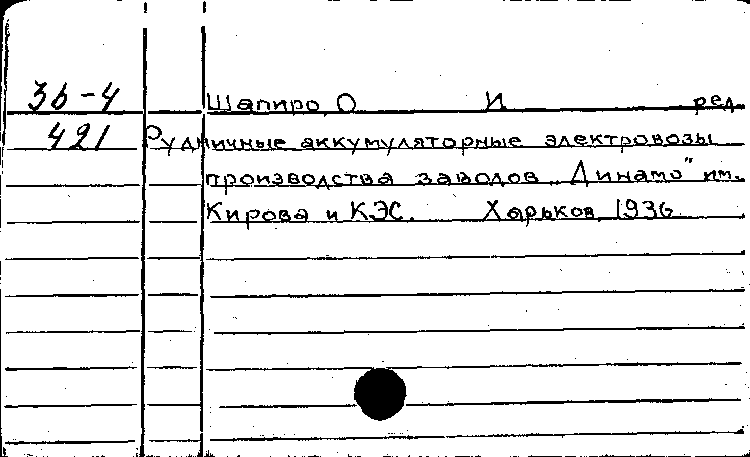 3б-4 Шапиро, О И ред.
421 Рудничные аккумуляторные электровозы
производства заводов „Динамо" им.
Кирова и КЭС. Харьков, 1936